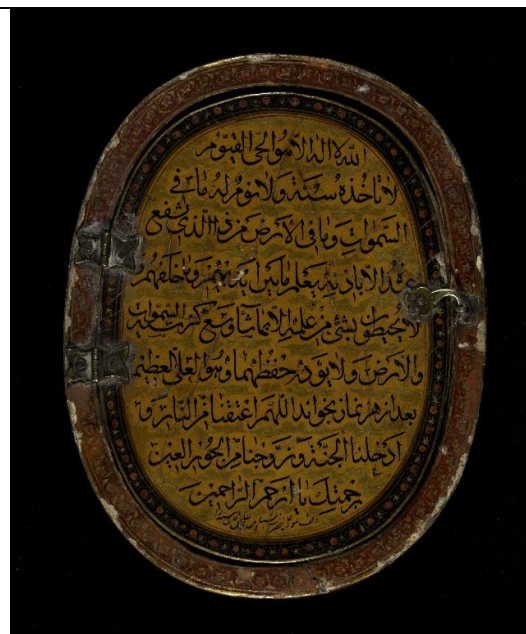 الله لا اله الا هو الحی القیوم
لا تاخذه سنة ولا نوم له ما فی
السموات وما فی الارض من ذا الذی یشفع
عنده الا باذنه یعلم ما بین ایدیهم وما خلفهم
ولا یحیطون بشئ من علمه الا بما شا وسع کرسیه السموات
والارض ولا یؤده حفظهما وهو العلی العظیم
بعد از هر نماز بخواند اللهم اعتقنا من النار و
ادخلنا الجنة وزوجنا من الحور العین
برحمتک یا ارحم الراحمین